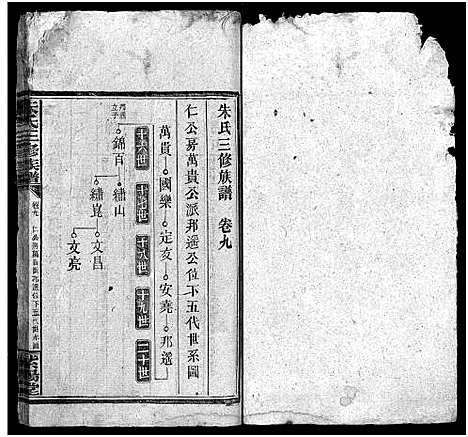 朱氏三修族譜 卷九
仁公房萬貴公派邦遥公位下五代世系圖
萬貴 國樂 定亥 安堯 邦遥
十六世 十七世 十八世 十九世 二十世
錦百 繡山
繡崑 文昌
文亮
朱氏三修族譜
卷九